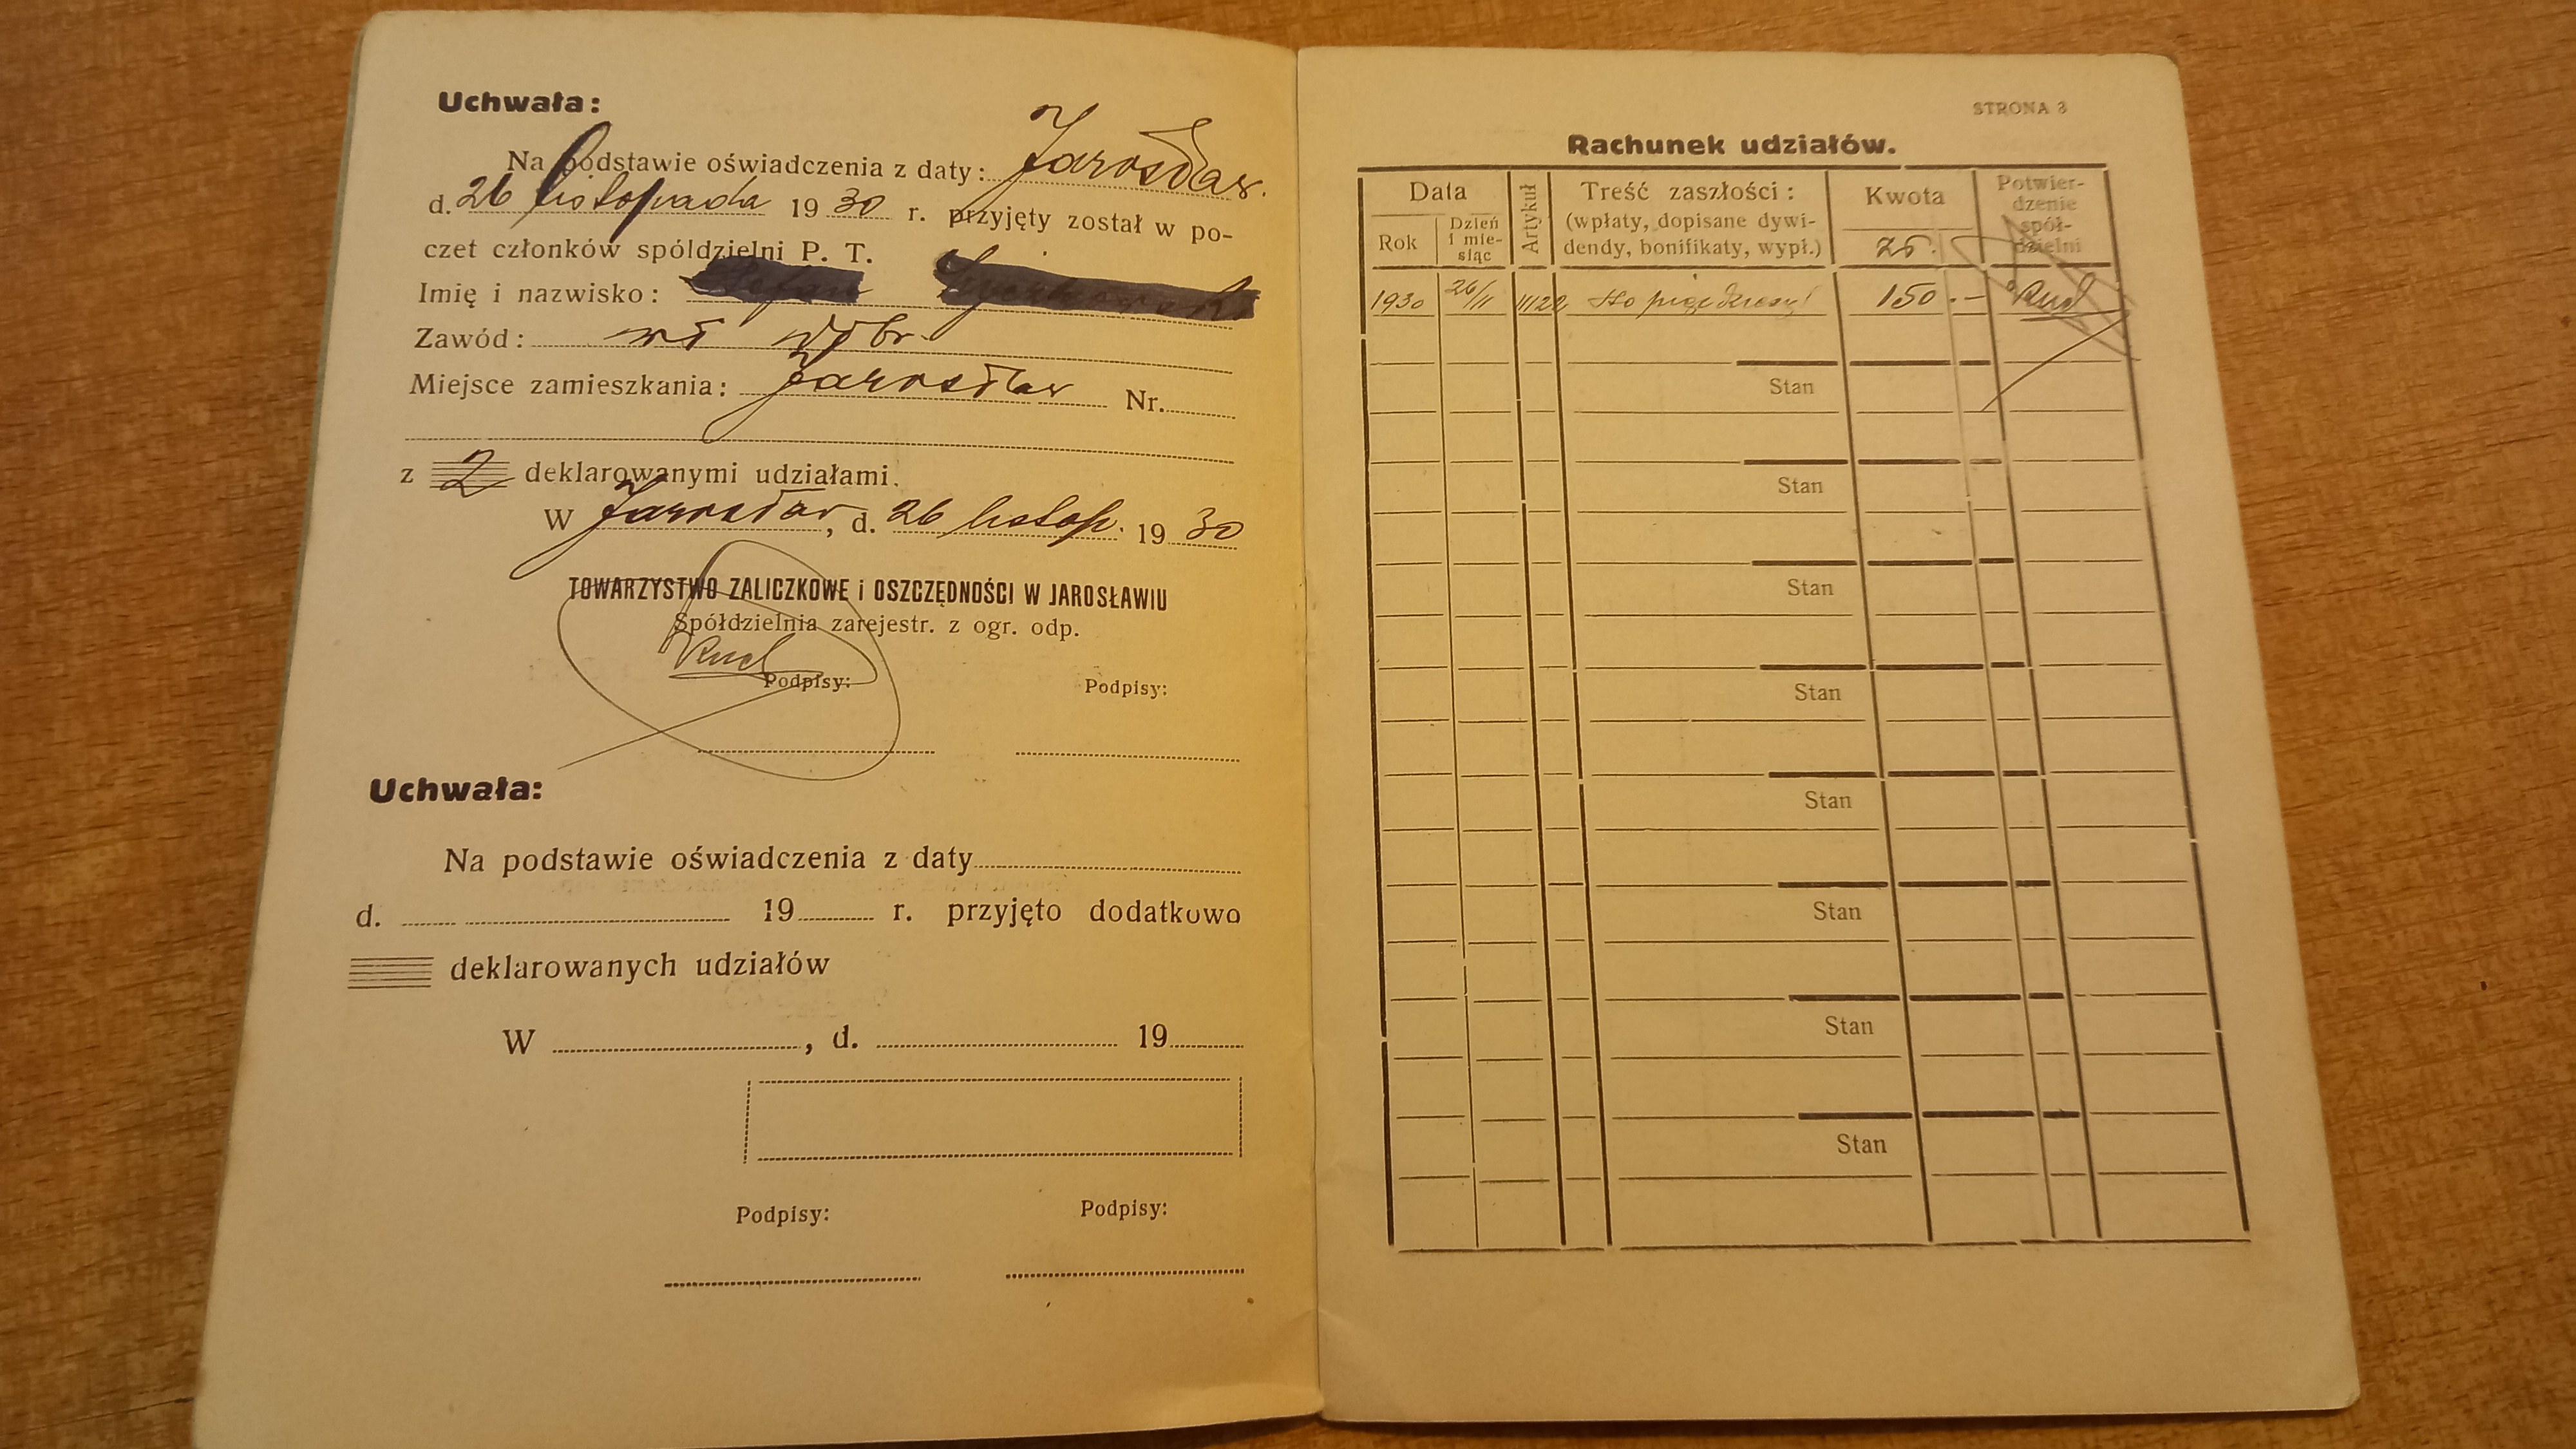 Uchwała:
Na podstawie oświadczenia z daty: Jarosław.
d. 26 listopada 19 30 r. przyjęty został w po-
czet członków spółdzielni P. T.
Imię i nazwisko:
Zawód: wł
Miejsce zamieszkania: Jarosław Nr.
z 2 deklarowanymi udziałami.
W Jarosław, d. 26 listop. 19 30
TOWARZYSTWO ZALICZKOWE i OSZCZĘDNOŚCI W JAROSŁAWIU
Spółdzielnia zarejestr. z ogr. odp.
Podpisy: Podpisy:
Uchwała:
Na podstawie oświadczenia z daty
d. 19 r. przyjęto dodatkowo
deklarowanych udziałów
W , d. 19
Podpisy: Podpisy:
STRONA 3
Rachunek udziałów.
Data
Rok
Dzień
i mie-
siąc
Artykuł
Treść zaszłości:
(wpłaty, dopisane dywi-
dendy, bonifikaty, wypł.)
Kwota
zł.
Potwier-
dzenie
spół-
dzielni
1930 26/11 1122 Sto pięćdziesiąt 150.-
Stan
Stan
Stan
Stan
Stan
Stan
Stan
Stan